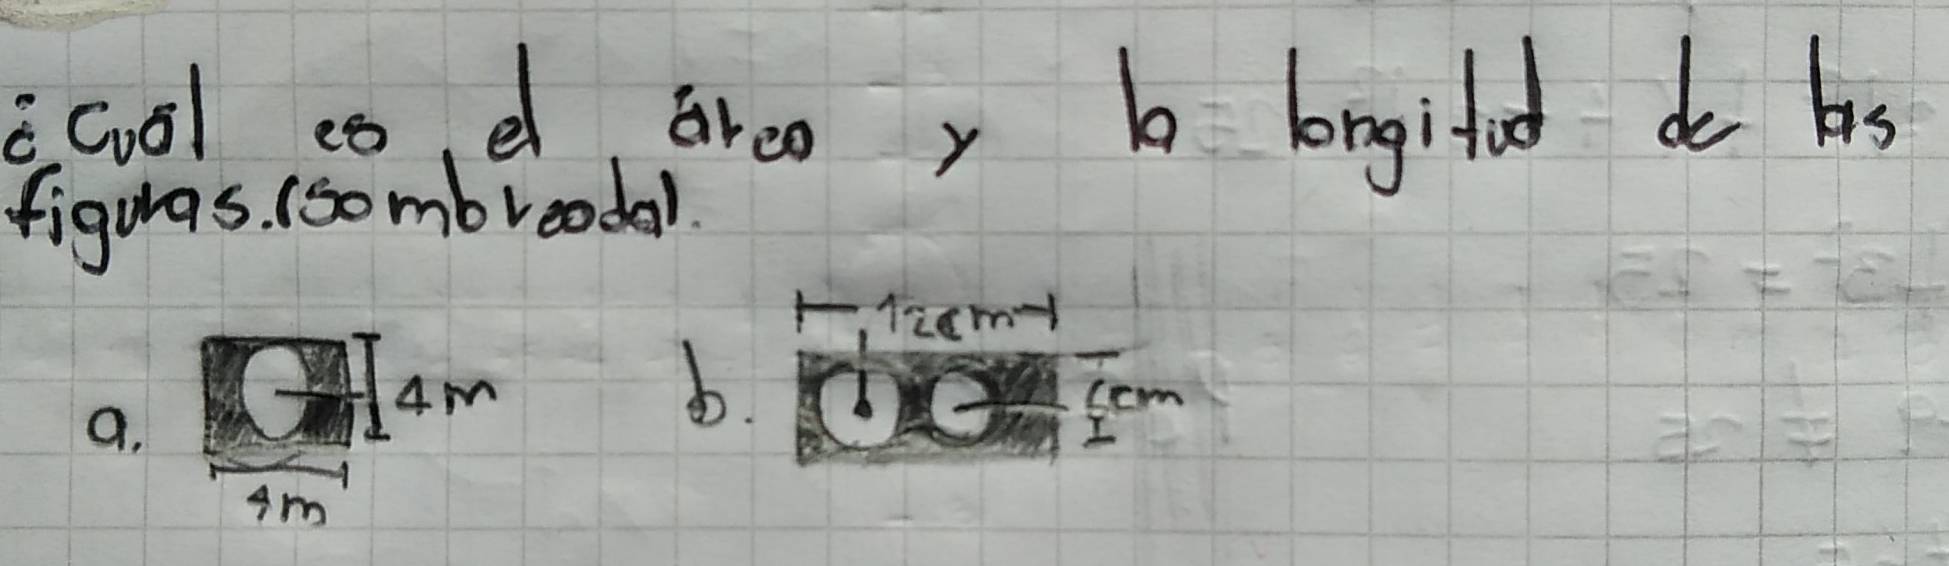 ¿Cuál es el área y la longitud de las
figuras. (sombreada).
12cm
a. 4m b. 6cm
4m